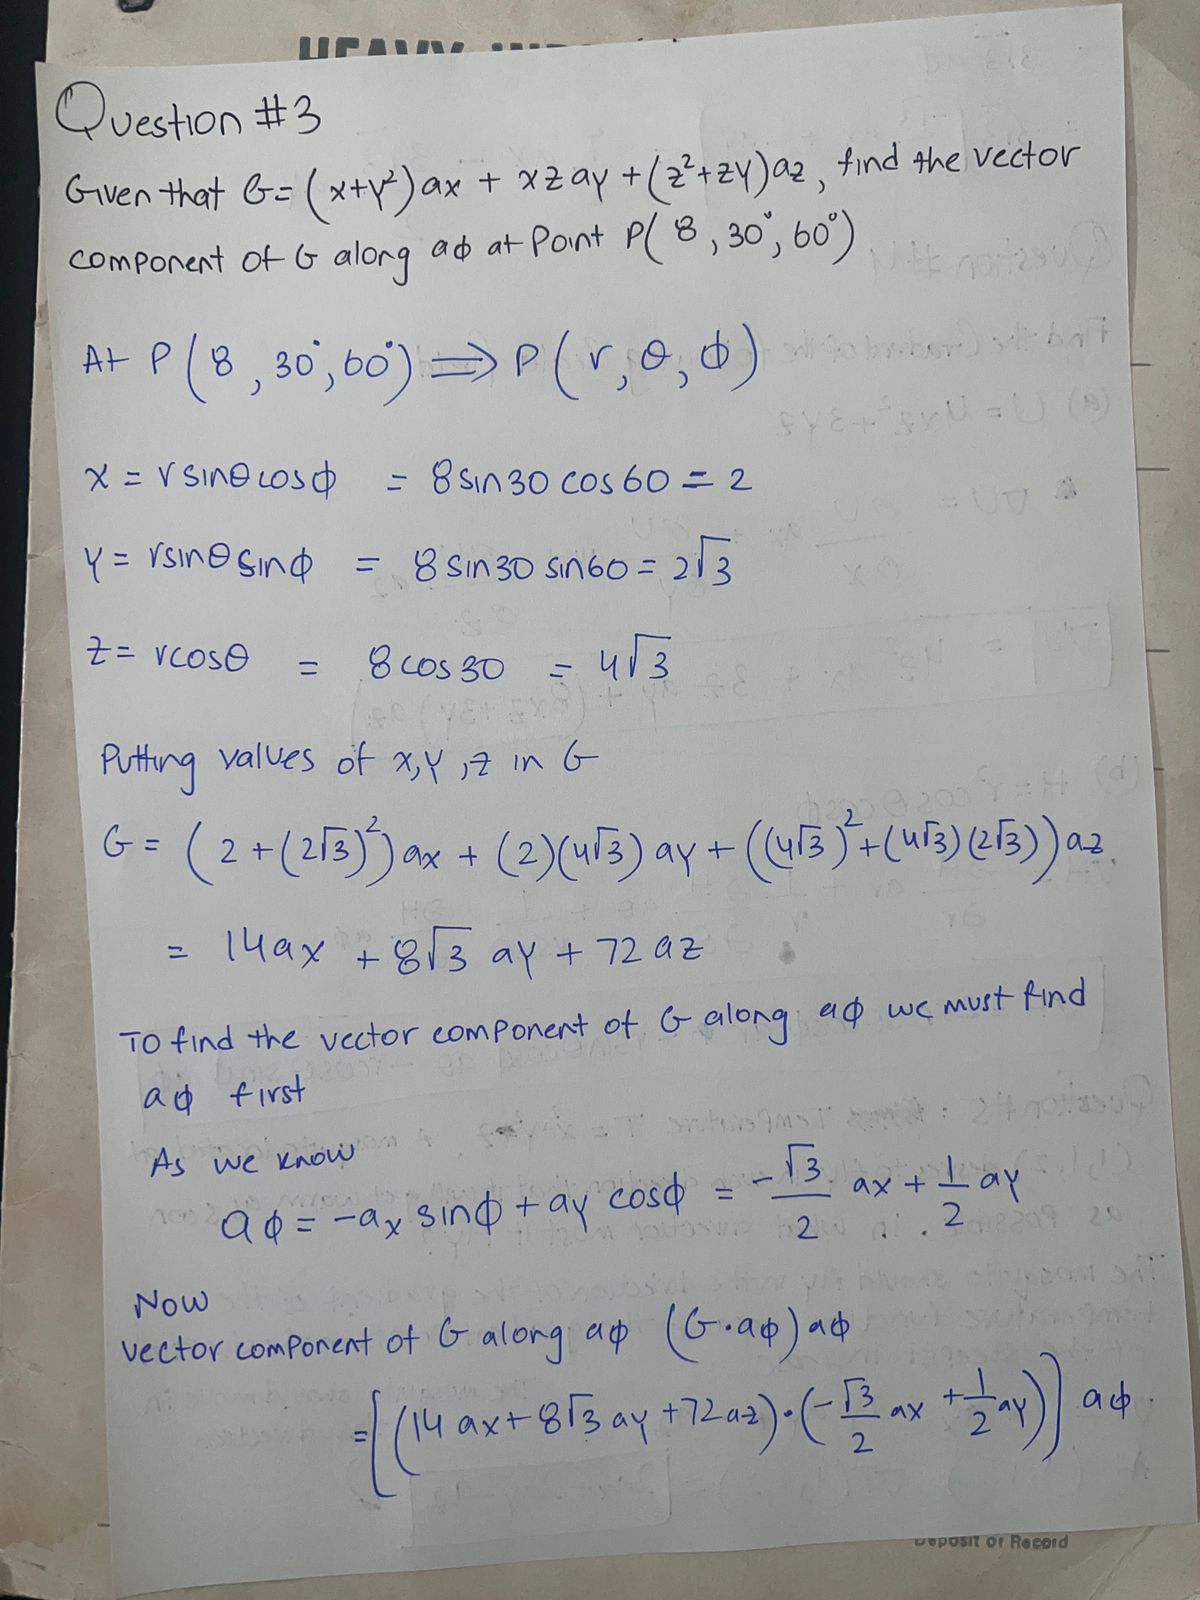 HEAVY
Question #3
Given that G = (x+y²)ax + xz ay + (z²+zy)az, find the vector
component of G along aϕ at Point P(8, 30°, 60°)
At P(8, 30°, 60°) ⟹ P(r, θ, ϕ)
x = r sinθ cosϕ = 8 sin30 cos60 = 2
y = rsinθ sinϕ = 8 sin30 sin60 = 2√3
z = rcosθ = 8 cos30 = 4√3
Putting values of x, y, z in G
G = (2+(2√3)²)ax + (2)(4√3)ay + ((4√3)²+(4√3)(2√3))az
= 14ax + 8√3 ay + 72 az
To find the vector component of G along aϕ we must find
aϕ first
As we know
aϕ = -ax sinϕ + ay cosϕ = -√3/2 ax + 1/2 ay
Now
vector component of G along aϕ (G·aϕ)aϕ
= [(14ax + 8√3 ay + 72az)·(-√3/2 ax + 1/2 ay)] aϕ
Deposit or Record